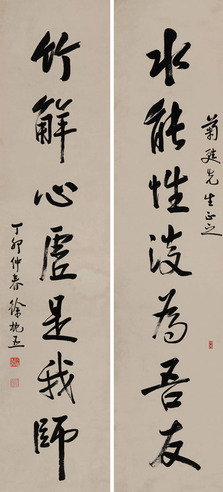 菊延先生正之
水能性淡為吾友
竹解心虛是我師
丁卯仲春徐枕亞